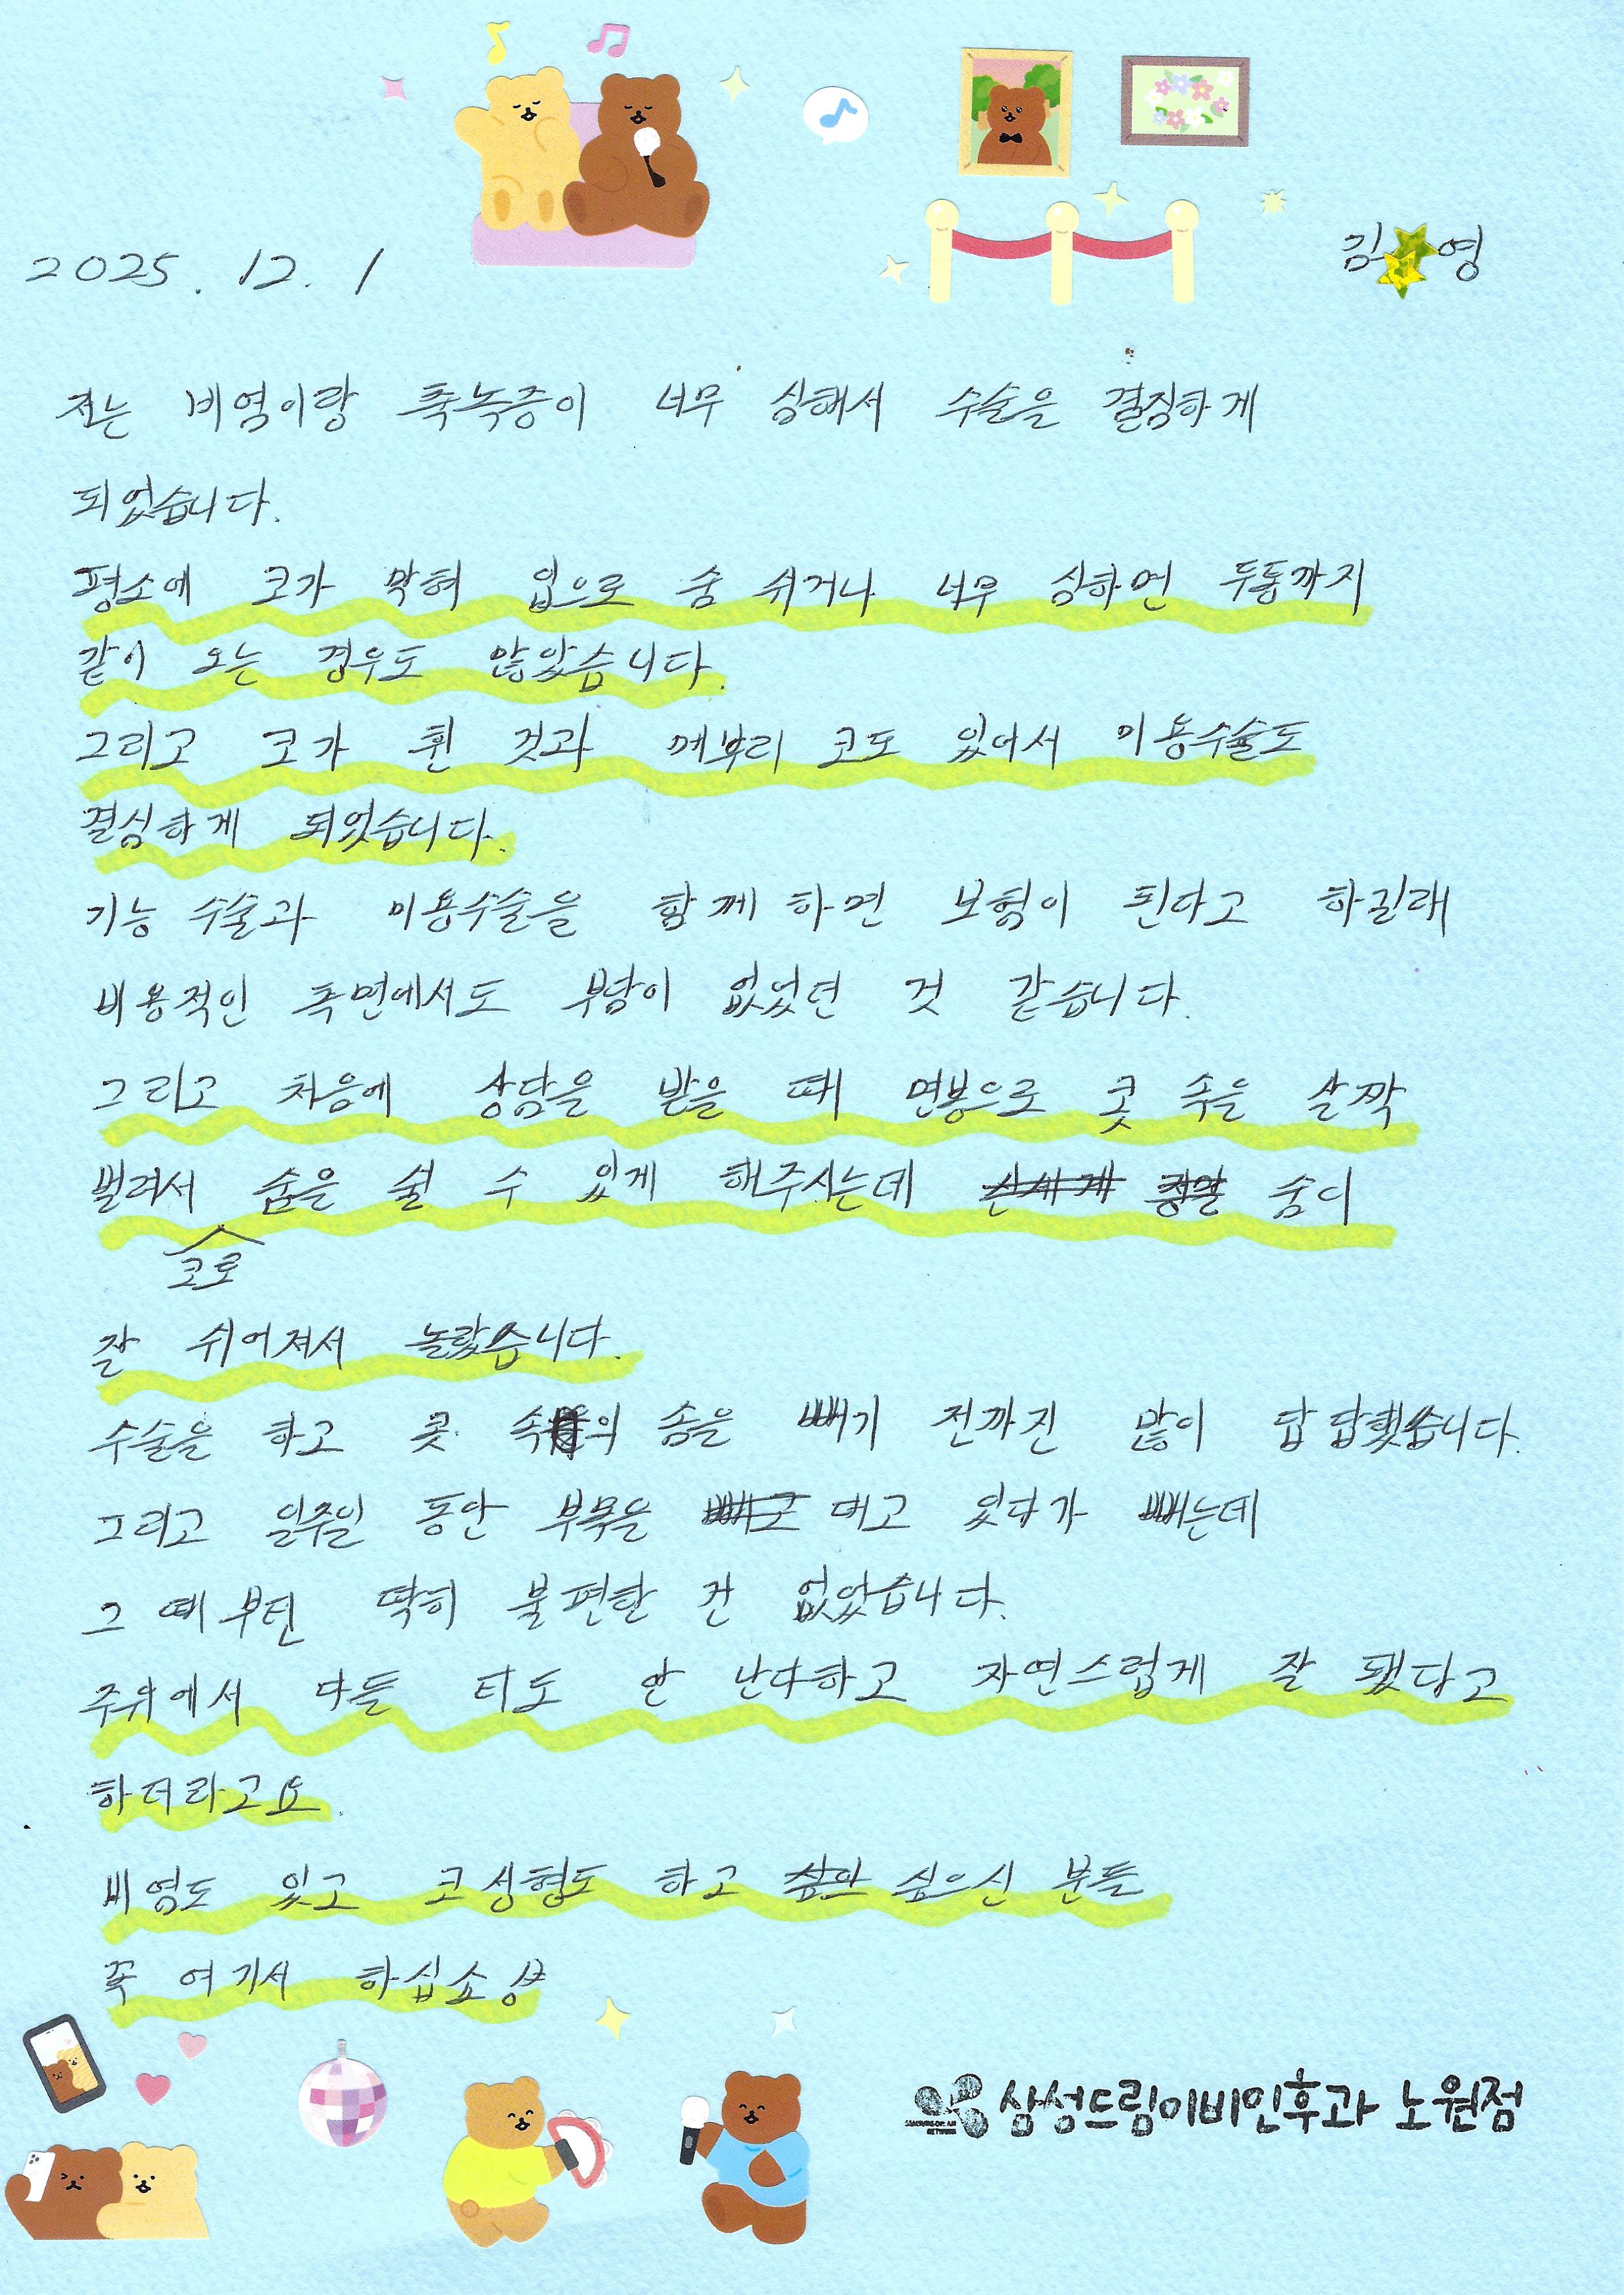 2025. 12. 1
김 영
저는 비염이랑 축농증이 너무 심해서 수술을 결정하게
되었습니다.
평소에 코가 막혀 입으로 숨 쉬거나 너무 심하면 두통까지
같이 오는 경우도 많았습니다.
그리고 코가 휜 것과 메부리 코도 있어서 미용수술도
결심하게 되었습니다.
기능 수술과 미용수술을 함께 하면 보험이 된다고 하길래
비용적인 측면에서도 부담이 없었던 것 같습니다.
그리고 처음에 상담을 받을 때 면봉으로 콧 속을 살짝
벌려서 숨을 쉴 수 있게 해주시는데 숨이
코로
잘 쉬어져서 놀랐습니다.
수술을 하고 콧 속의 솜을 빼기 전까진 많이 답답했습니다.
그리고 일주일 동안 부목을 대고 있다가 빼는데
그 때부턴 딱히 불편한 건 없었습니다.
주위에서 다들 티도 안 난다하고 자연스럽게 잘 됐다고
하더라고요.
비염도 있고 코성형도 하고 싶으신 분들
꼭 여기서 하십쇼
삼성드림이비인후과 노원점